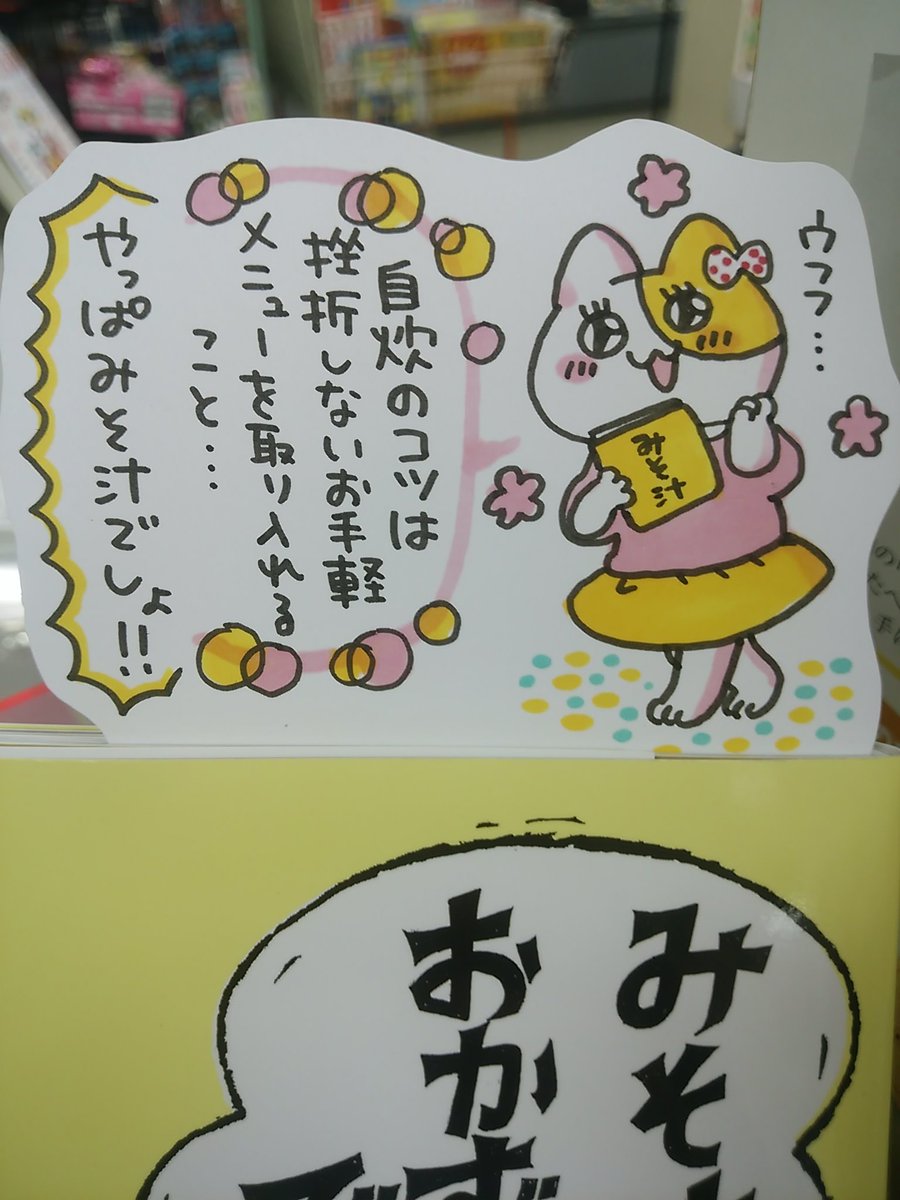 ウフフ…
みそ汁
自炊のコツは
挫折しないお手軽
メニューを取り入れる
こと…
やっぱみそ汁でしょ!!
みそ
おかず
で